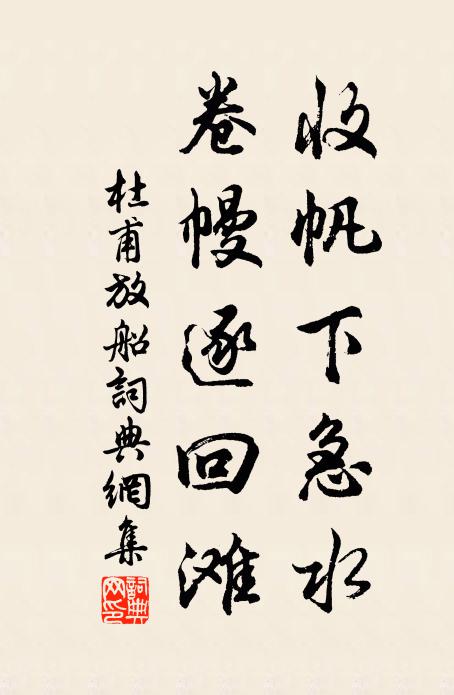 收帆下急水
卷幔逐回滩
杜甫放船詞典網集
詞典
网印